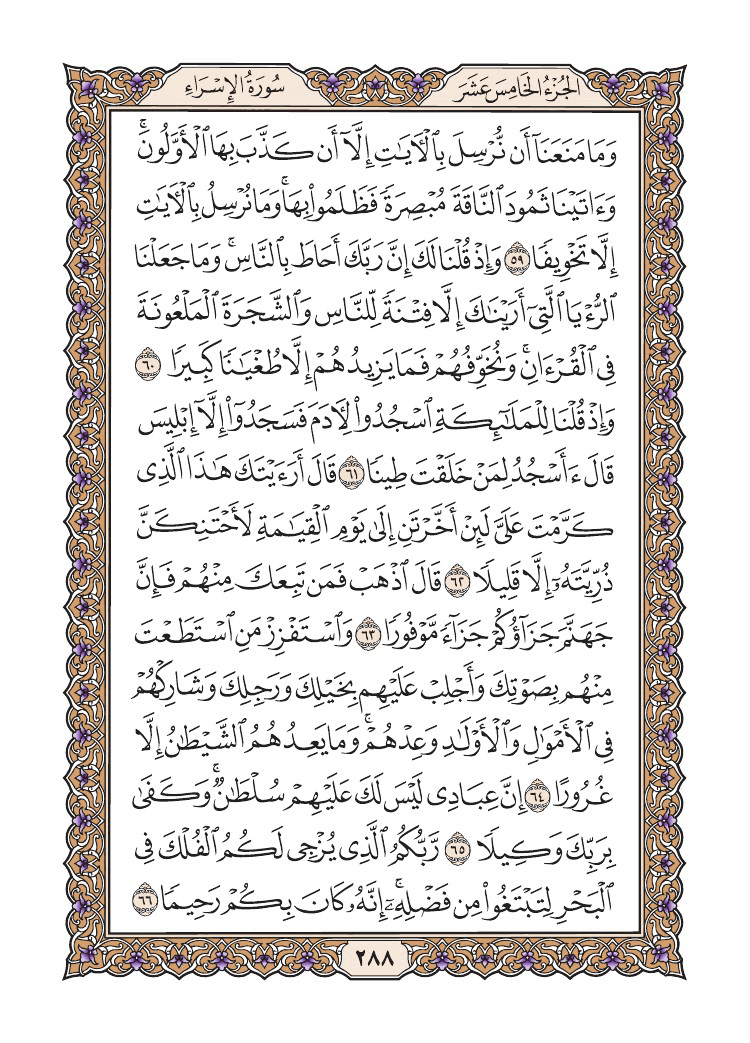 الجُزْءُ الخَامِسَ عَشَرَ
سُورَةُ الإِسْرَاءِ
وَمَا مَنَعَنَآ أَن نُّرْسِلَ بِٱلْأٓيَٰتِ إِلَّآ أَن كَذَّبَ بِهَا ٱلْأَوَّلُونَۚ
وَءَاتَيْنَا ثَمُودَ ٱلنَّاقَةَ مُبْصِرَةً فَظَلَمُوا۟ بِهَاۚ وَمَا نُرْسِلُ بِٱلْأٓيَٰتِ
إِلَّا تَخْوِيفًا ٥٩ وَإِذْ قُلْنَا لَكَ إِنَّ رَبَّكَ أَحَاطَ بِٱلنَّاسِۚ وَمَا جَعَلْنَا
ٱلرُّءْيَا ٱلَّتِىٓ أَرَيْنَٰكَ إِلَّا فِتْنَةً لِّلنَّاسِ وَٱلشَّجَرَةَ ٱلْمَلْعُونَةَ
فِى ٱلْقُرْءَانِۚ وَنُخَوِّفُهُمْ فَمَا يَزِيدُهُمْ إِلَّا طُغْيَٰنًا كَبِيرًا ٦٠
وَإِذْ قُلْنَا لِلْمَلَٰٓئِكَةِ ٱسْجُدُوا۟ لِأٓدَمَ فَسَجَدُوٓا۟ إِلَّآ إِبْلِيسَ
قَالَ ءَأَسْجُدُ لِمَنْ خَلَقْتَ طِينًا ٦١ قَالَ أَرَءَيْتَكَ هَٰذَا ٱلَّذِى
كَرَّمْتَ عَلَىَّ لَئِنْ أَخَّرْتَنِ إِلَىٰ يَوْمِ ٱلْقِيَٰمَةِ لَأَحْتَنِكَنَّ
ذُرِّيَّتَهُۥٓ إِلَّا قَلِيلًا ٦٢ قَالَ ٱذْهَبْ فَمَن تَبِعَكَ مِنْهُمْ فَإِنَّ
جَهَنَّمَ جَزَآؤُكُمْ جَزَآءً مَّوْفُورًا ٦٣ وَٱسْتَفْزِزْ مَنِ ٱسْتَطَعْتَ
مِنْهُم بِصَوْتِكَ وَأَجْلِبْ عَلَيْهِم بِخَيْلِكَ وَرَجِلِكَ وَشَارِكْهُمْ
فِى ٱلْأَمْوَٰلِ وَٱلْأَوْلَٰدِ وَعِدْهُمْۚ وَمَا يَعِدُهُمُ ٱلشَّيْطَٰنُ إِلَّا
غُرُورًا ٦٤ إِنَّ عِبَادِى لَيْسَ لَكَ عَلَيْهِمْ سُلْطَٰنٌۚ وَكَفَىٰ
بِرَبِّكَ وَكِيلًا ٦٥ رَّبُّكُمُ ٱلَّذِى يُزْجِى لَكُمُ ٱلْفُلْكَ فِى
ٱلْبَحْرِ لِتَبْتَغُوا۟ مِن فَضْلِهِۦٓۚ إِنَّهُۥ كَانَ بِكُمْ رَحِيمًا ٦٦
٢٨٨